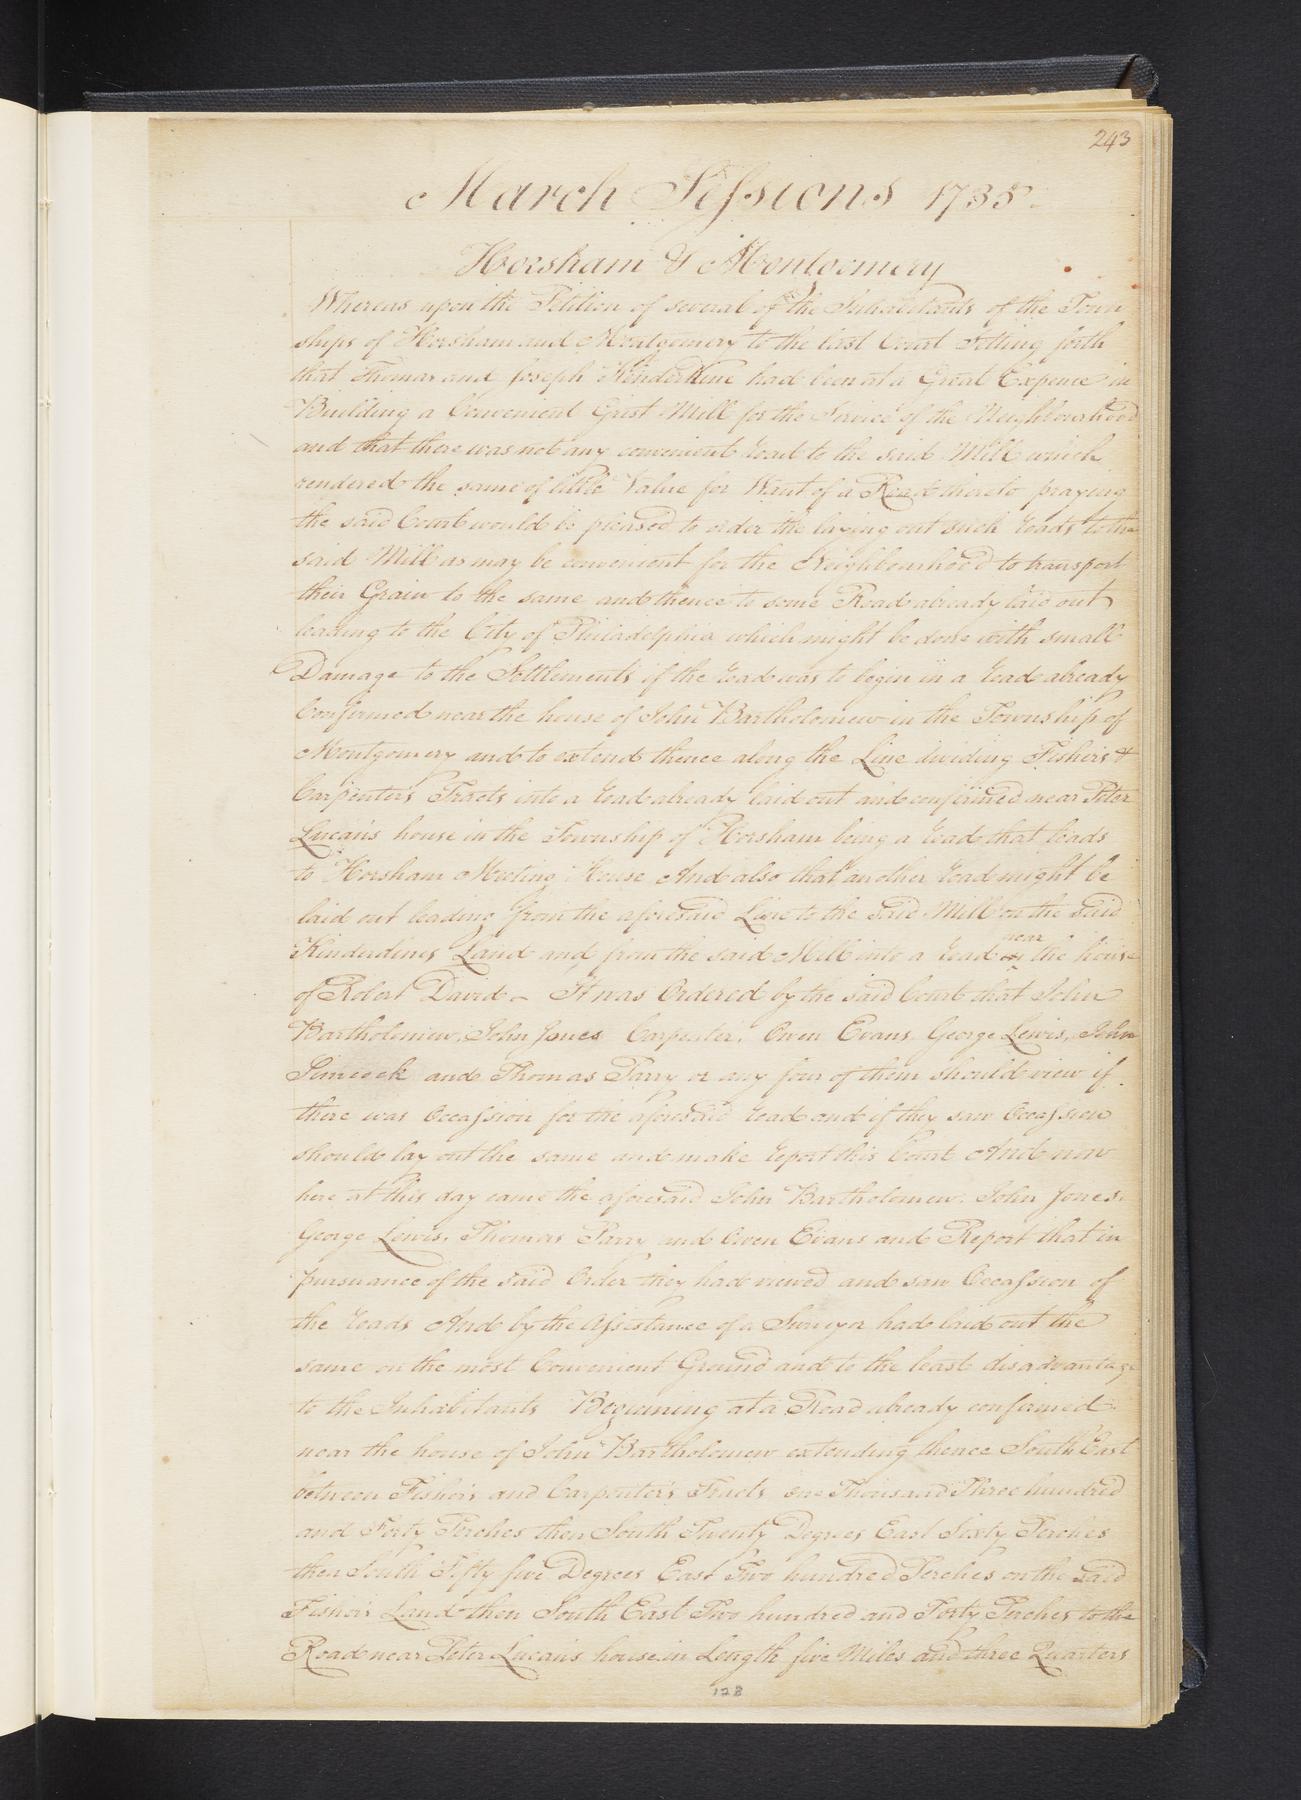 243
March Sessions 1735.
Horsham & Montgomery
Whereas upon the Petition of several of the Inhabitants of the Town
ships of Horsham and Montgomery to the last Court Setting forth
that Thomas and Joseph Kinderdine had been at a Great Expence in
Building a Convenient Grist Mill for the Service of the Neighbourhood
and that there was not any convenient Road to the said Mill which
rendered the same of little Value for Want of a Road thereto praying
the said Court would be pleased to order the laying out such Roads to the
said Mill as may be convenient for the Neighbourhood to transport
their Grain to the same and thence to some Road already laid out
leading to the City of Philadelphia which might be done with small
Damage to the Settlements if the Road was to begin in a Road already
Confirmed near the house of John Bartholomew in the Township of
Montgomery and to extend thence along the Line dividing Fishers &
Carpenters Tracts into a Road already laid out and confirmed near Peter
Lucan's house in the Township of Horsham being a Road that leads
to Horsham Meeting House And also that another Road might be
laid out leading from the aforesaid Line to the said Mill on the said
Kinderdines Land and from the said Mill into a Road near the house
of Robert David - It was Ordered by the said Court that John
Bartholomew, John Jones Carpenter, Owen Evans, George Lewis, John
Simcock and Thomas Parry or any four of them should view if
there was Occassion for the aforesaid Road and if they saw Occassion
should lay out the same and make Report this Court And now
here at this day came the aforesaid John Bartholomew, John Jones,
George Lewis, Thomas Parry and Owen Evans and Report that in
pursuance of the said Order they had viewed and saw Occassion of
the Roads And by the Assistance of a Surveyor had laid out the
same on the most Convenient Ground and to the least disadvantage
to the Inhabitants Beginning at a Road already confirmed
near the house of John Bartholomew extending thence South East
between Fishers and Carpenter's Tracts one Thousand Three hundred
and Forty Perches then South Twenty Degrees East Sixty Perches
then South Fifty five Degrees East Two hundred Perches on the said
Fishers Land then South East Two hundred and Forty Perches to the
Road near Peter Lucan's house in Length five Miles and three Quarters
128